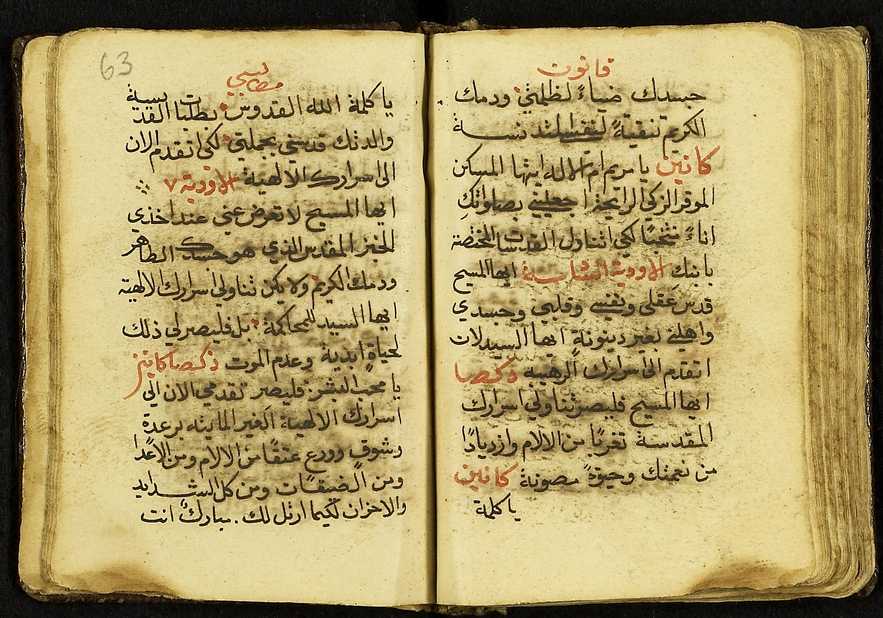 قانون
جسدك ضياءً لظلمتي ودمك
الكريم تنقيةً لنفسي المتدنسة
كانين يا مريم ام الاله ايتها المسكن
الموقر الزكي الرايحة اجعليني بصلواتكِ
اناءً منتخبًا لكي اتناول القدسات المختصة
بابنكِ الاودية السابعة ايها المسيح
قدس عقلي ونفسي وقلبي وجسدي
واهلني لغير دينونةٍ ايها السيد لان
اتقدم الى اسرارك الرهيبة ذكصا
ايها المسيح فليصر تناولي اسرارك
المقدسة تغربًا من الالام وازديادًا
من نعمتك وحيوةً مصونة كانين
يا كلمة
63
مطالبسي
يا كلمة الله القدوس بطلبات القديسة
والدتك قدسني بجملتي لكي اتقدم الان
الى اسرارك الالهية الاودية ٧
ايها المسيح لا تعرض عني عند اخذي
الخبز المقدس الذي هو جسدك الطاهر
ودمك الكريم ولا يكن تناولي اسرارك الالهية
ايها السيد للمحاكمة بل فليصر لي ذلك
لحياةٍ ابدية وعدم الموت ذكصا كانين
يا محب البشر فليصر تقدمي الان الى
اسرارك الالهية الغير الماينه برعدة
وشوقٍ وورع عتقًا من الالام ومن الاعدا
ومن الضيقات ومن كل الشدايد
والاحزان لكيما ارتل لك مبارك انت